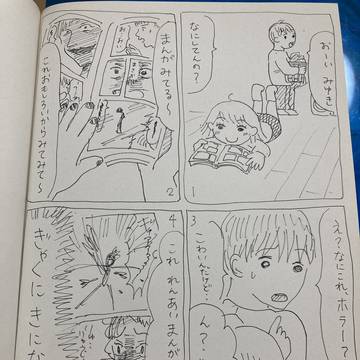 おーい みゆき
なにしてんの?
1
まんがみてる〜
これおもしろいからみてみて〜
2
3
え?なにこれ、ホラーっ
こわいんだけど…
ん?
4
これ れんあいまんが
ぎゃくに きにな